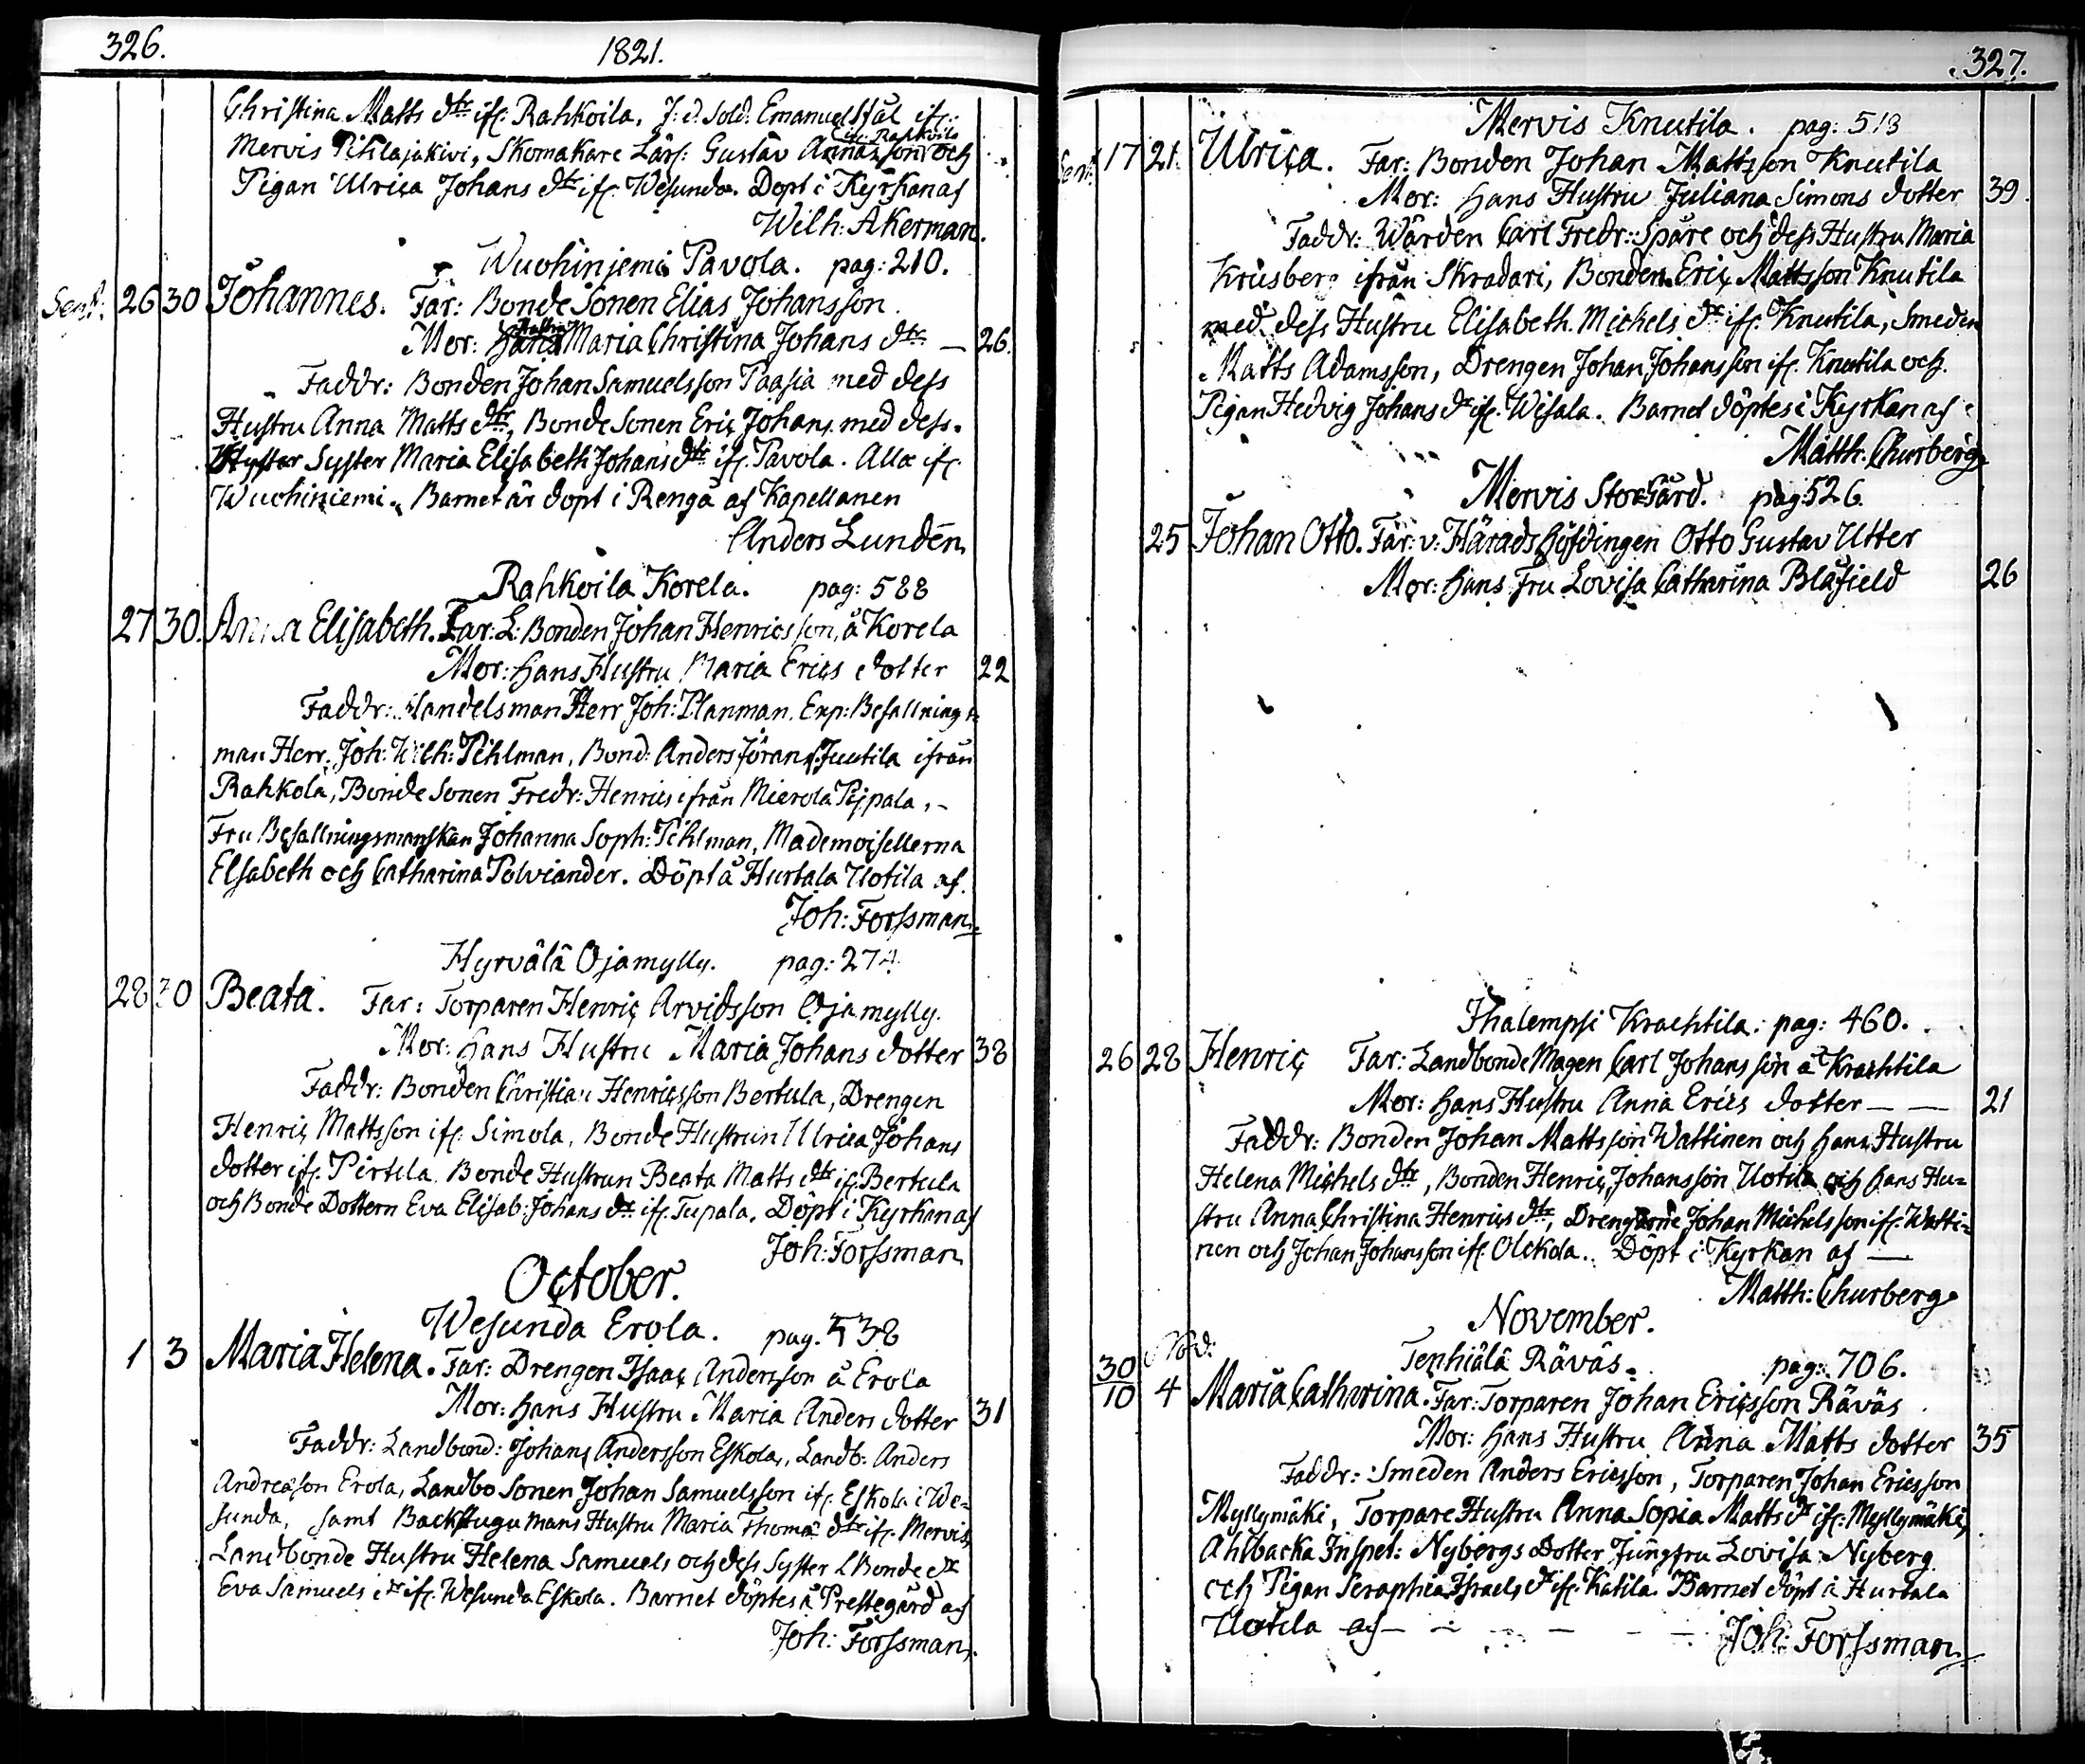 326.
1821.
Christina Matts dtr ifr. Rahkoila. J. d. Sold. Emanuel Stål ifr.
ifr. Rahkoila
Mervis Pihlajakivi, Skomakare Lärl: Gustav Annasson och
Pigan Ulrica Johans dtr ifr. Wesunda. Döpt i Kyrkan af
Wilh: Åkerman.
Wuohiniemi Pavola. pag: 210.
Sept: 26 30 Johannes. Far: Bonde Sonen Elias Johansson
Mor: Hustru Maria Christina Johans dtr — 26.
Faddr: Bonden Johan Samuelsson Paasia med dess
Hustru Anna Matts dtr, Bonde Sonen Eric Johans. med dess
Syster Maria Elisabeth Johans dtr ifr. Pavola. Alla ifr.
Wuohiniemi. Barnet är döpt i Rengå af Kapellanen
Anders Lundén
Rahkoila Korela. pag: 588
27 30. Anna Elisabeth. Far: L: Bonden Johan Henricsson, å Korela
Mor: Hans Hustru Maria Erics dotter 22
Faddr: Handelsman Herr Joh: Planman. Exp: Befallnings
man Herr. Joh: Wilh: Pihlman, Bond: Anders Jörans. Juutila ifrån
Rahkola, Bonde Sonen Fredr: Henrics ifrån Mierola Pijpala,
Fru Befallningsmanskan Johanna Soph: Pihlman, Mademoisellerna
Elsabeth och Catharina Polviander. Döpt å Hurtala Uotila af
Joh: Forssman.
Hyrvälä Ojamylly. pag: 274
28 30 Beata. Far: Torparen Henric Arvidsson Ojamylly.
Mor: Hans Hustru Maria Johans dotter 38
Faddr: Bonden Christian Henricsson Bertula, Drengen
Henric Mattsson ifr. Simola, Bonde Hustrun Ulrica Johans
dotter ifr. Pirtila. Bonde Hustrun Beata Matts dtr ifr. Bertula
och Bonde Dottern Eva Elisab: Johans dr ifr. Tupala. Döpt i Kyrkan af
Joh: Forssman
October.
Wesunda Erola. pag. 538
1 3 Maria Helena. Far: Drengen Isaac Andersson å Erola
Mor: Hans Hustru Maria Anders dotter 31
Faddr: Landbond: Johans Andersson Eskola, Landb: Anders
Andreasson Erola, Landbo Sonen Johan Samuelsson ifr. Eskola i We-
sunda, samt Backstugu mans Hustru Maria Thomæ dtr ifr. Mervis,
Landbonde Hustru Helena Samuels och dess Syster L Bonde dr
Eva Samuels dr ifr. Wesunda Eskola. Barnet döptes å Prestegård af
Joh: Forssman.
327.
Mervis Knutila. pag: 513
Sept: 17 21. Ulrica. Far: Bonden Johan Mattsson Knutila
Mor: Hans Hustru Juliana Simons dotter 39.
Faddr: Wärden Carl Fredr: Spåre och dess Hustru Maria
Krusberg ifrån Skradari, Bonden Eric Mattsson Knutila
med dess Hustru Elisabeth Michels dr ifr. Knutila, Smeden
Matts Adamsson, Drengen Johan Johansson ifr. Knutila och
Pigan Hedvig Johans dr ifr. Wisala. Barnet döptes i Kyrkan af
Matth: Churberg
Mervis Storgård. pag 526.
25 Johan Otto. Far: v: Härads Höfdingen Otto Gustav Utter
Mor: Hans Fru Lovisa Catharina Blåfield 26
Ihalempsi Krachtila: pag: 460.
26 28 Henric Far: Landbonde Magen Carl Johansson å Krachtila
Mor: Hans Hustru Anna Erics dotter — — 21
Faddr: Bonden Johan Mattsson Wattinen och Hans Hustru
Helena Michels dtr, Bonden Henric Johansson Uotila och hans Hu-
stru Anna Christina Henrics dtr, Drengarne Johan Michelsson ifr. Watti-
nen och Johan Johansson ifr. Olckola. Döpt i Kyrkan af —
Matth: Churberg
November.
Tenhiälä Räväs. pag: 706.
30/10 Nov: 4 Maria Catharina. Far: Torparen Johan Ericsson Räväs
Mor: Hans Hustru Anna Matts dotter 35
Faddr: Smeden Anders Ericsson, Torparen Johan Ericsson
Myllymäki, Torpare Hustru Anna Sopia Matts dr ifr. Myllymäki,
Ahlbacka Inspet: Nybergs Dotter Jungfru Lovisa Nyberg
och Pigan Seraphia Israels dr ifr. Katila. Barnet döpt å Hurtala
Uotila af — — — — — Joh: Forssman